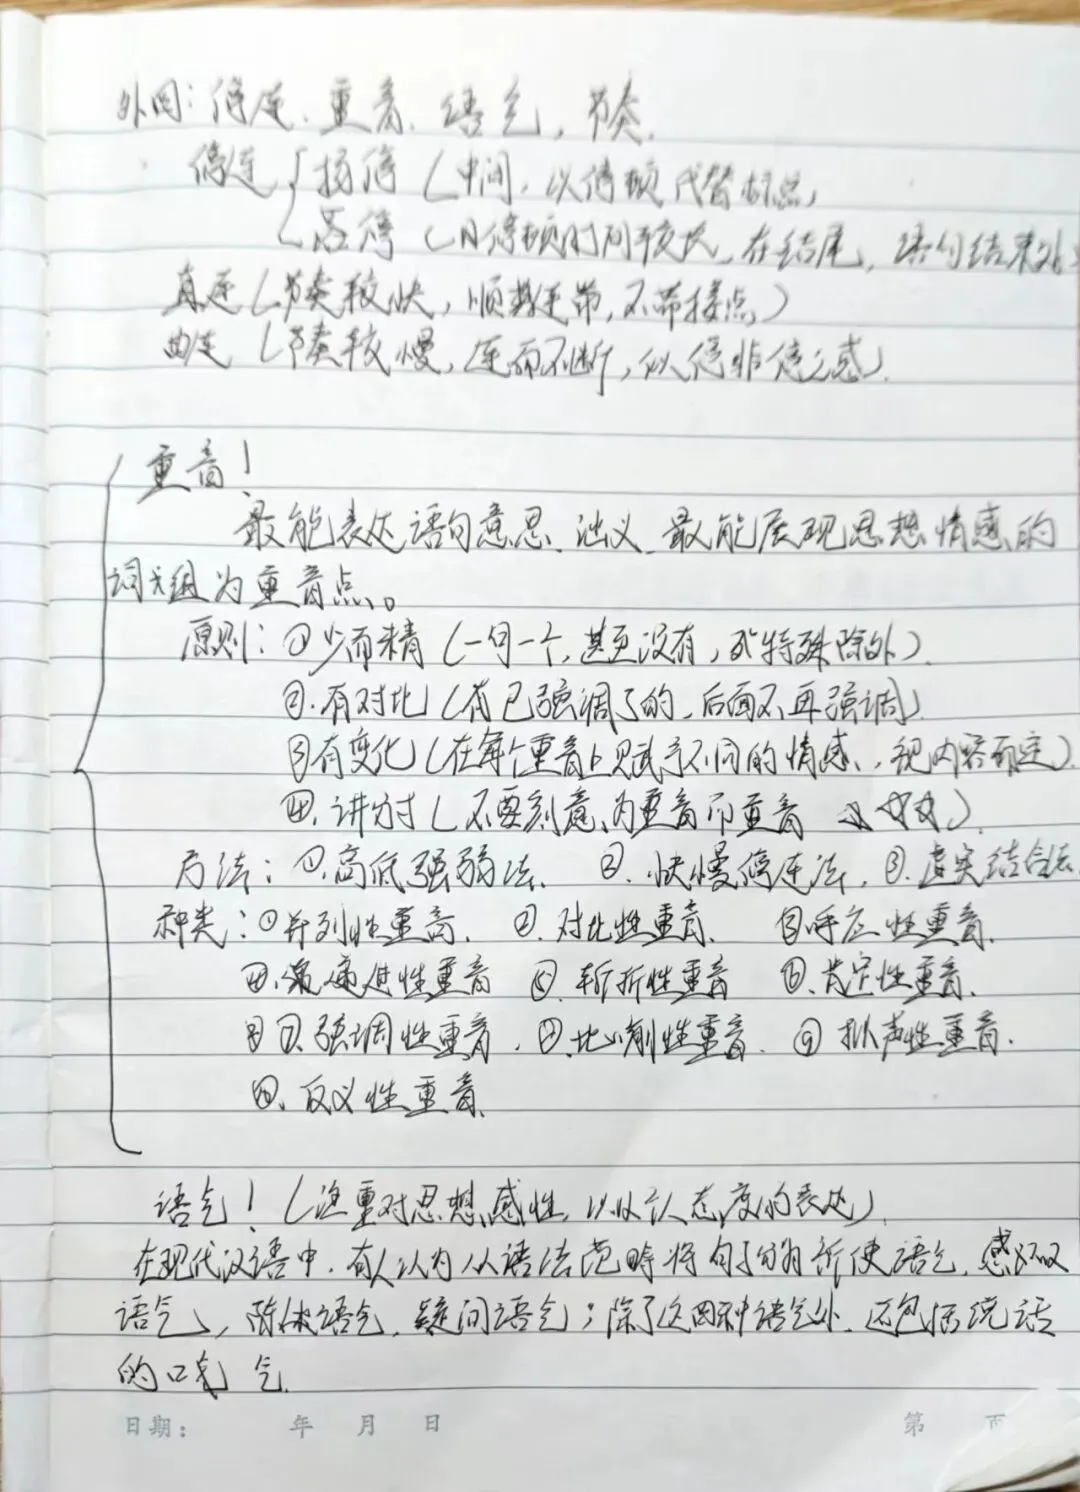 外因：停连、重音、语气、节奏.
停连 扬停（中间，以停顿代替标点）
落停（停顿时间较长，在结尾，语句结束处
直连（节奏较快，顺势连带，不带接点）
曲连（节奏较慢，连而不断，似停非停之感）.
重音！
最能表达语句意思、涵义、最能展现思想情感的
词或组为重音点。
原则：①少而精（一句一个，甚至没有，特殊除外）.
②.有对比（前已强调了的，后面不再强调）
③有变化（在每个重音上赋予不同的情感，视内容而定）
④.讲分寸（不要刻意、为重音而重音）.
方法：①.高低强弱法. ②.快慢停连法. ③.虚实结合法
种类：①并列性重音. ②.对比性重音. ③呼应性重音.
④.递进性重音 ⑤.转折性重音 ⑥.肯定性重音.
⑦.强调性重音. ⑧.比喻性重音. ⑨拟声性重音.
⑩.反义性重音.
语气！（注重对思想感性，以及认态度的表达）.
在现代汉语中，有人认为从语法范畴将句子分为祈使语气，感叹
语气，陈述语气，疑问语气；除了这四种语气外，还包括说话
的口气.
日期： 年 月 日 第 页